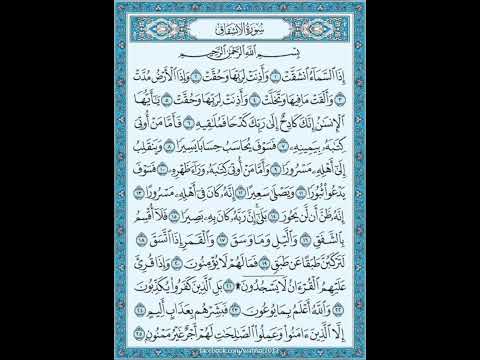 سُورَةُ الِانشِقَاقِ
بِسْمِ اللَّهِ الرَّحْمَٰنِ الرَّحِيمِ
إِذَا السَّمَاءُ انشَقَّتْ ١ وَأَذِنَتْ لِرَبِّهَا وَحُقَّتْ ٢ وَإِذَا الْأَرْضُ مُدَّتْ
٣ وَأَلْقَتْ مَا فِيهَا وَتَخَلَّتْ ٤ وَأَذِنَتْ لِرَبِّهَا وَحُقَّتْ ٥ يَٰأَيُّهَا
الْإِنسَٰنُ إِنَّكَ كَادِحٌ إِلَىٰ رَبِّكَ كَدْحًا فَمُلَٰقِيهِ ٦ فَأَمَّا مَنْ أُوتِيَ
كِتَٰبَهُۥ بِيَمِينِهِۦ ٧ فَسَوْفَ يُحَاسَبُ حِسَابًا يَسِيرًا ٨ وَيَنقَلِبُ
إِلَىٰ أَهْلِهِۦ مَسْرُورًا ٩ وَأَمَّا مَنْ أُوتِيَ كِتَٰبَهُۥ وَرَاءَ ظَهْرِهِۦ ١٠ فَسَوْفَ
يَدْعُوا ثُبُورًا ١١ وَيَصْلَىٰ سَعِيرًا ١٢ إِنَّهُۥ كَانَ فِي أَهْلِهِۦ مَسْرُورًا ١٣
إِنَّهُۥ ظَنَّ أَن لَّن يَحُورَ ١٤ بَلَىٰ إِنَّ رَبَّهُۥ كَانَ بِهِۦ بَصِيرًا ١٥ فَلَا أُقْسِمُ
بِالشَّفَقِ ١٦ وَاللَّيْلِ وَمَا وَسَقَ ١٧ وَالْقَمَرِ إِذَا اتَّسَقَ ١٨
لَتَرْكَبُنَّ طَبَقًا عَن طَبَقٍ ١٩ فَمَا لَهُمْ لَا يُؤْمِنُونَ ٢٠ وَإِذَا قُرِئَ
عَلَيْهِمُ الْقُرْءَانُ لَا يَسْجُدُونَ ۩ ٢١ بَلِ الَّذِينَ كَفَرُوا يُكَذِّبُونَ
٢٢ وَاللَّهُ أَعْلَمُ بِمَا يُوعُونَ ٢٣ فَبَشِّرْهُم بِعَذَابٍ أَلِيمٍ ٢٤
إِلَّا الَّذِينَ ءَامَنُوا وَعَمِلُوا الصَّٰلِحَٰتِ لَهُمْ أَجْرٌ غَيْرُ مَمْنُونٍ ٢٥